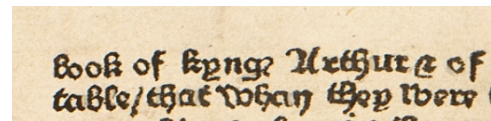 book of kyng Arthur & of
table / that whan they were